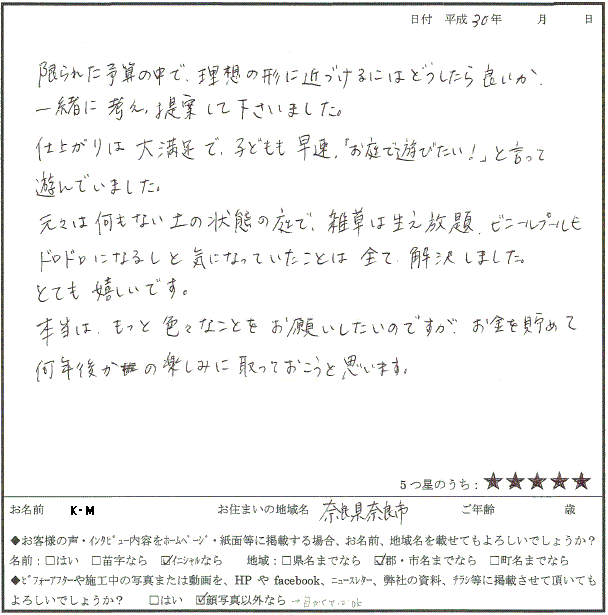 日付 平成 30年 月 日
限られた予算の中で、理想の形に近づけるにはどうしたら良いか、
一緒に考え、提案して下さいました。
仕上がりは大満足で、子どもも早速、「お庭で遊びたい!」と言って
遊んでいました。
元々は何もない土の状態の庭で、雑草は生え放題、ビニールプールも
ドロドロになるしと気になっていたことは全て、解決しました。
とても嬉しいです。
本当は、もっと色々なことをお願いしたいのですが、お金を貯めて
何年後かの楽しみに取っておこうと思います。
5つ星のうち:★★★★★
お名前 K・M お住まいの地域名 奈良県奈良市 ご年齢 歳
◆お客様の声・インタビュー内容をホームページ・紙面等に掲載する場合、お名前、地域名を載せてもよろしいでしょうか?
名前:□はい □苗字なら ☑イニシャルなら 地域:□県名までなら ☑郡・市名までなら □町名までなら
◆ビフォーアフターや施工中の写真または動画を、HP や facebook、ニュースレター、弊社の資料、チラシ等に掲載させて頂いても
よろしいでしょうか? □はい ☑顔写真以外なら